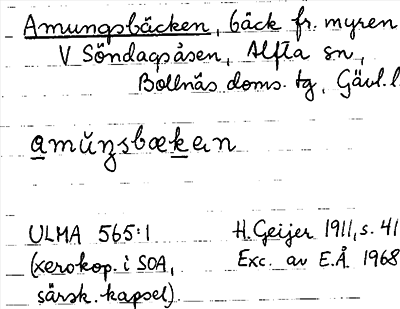 Amungsbäcken, bäck fr. myren
V Söndagsåsen, Alfta sn,
Bollnäs doms. tg, Gävl. l.
amŭŋsbækɐn
ULMA 565:1
(xerokop. i SOA,
särsk. kapsel)
H. Geijer 1911, s. 41
Exc. av E.Å. 1968